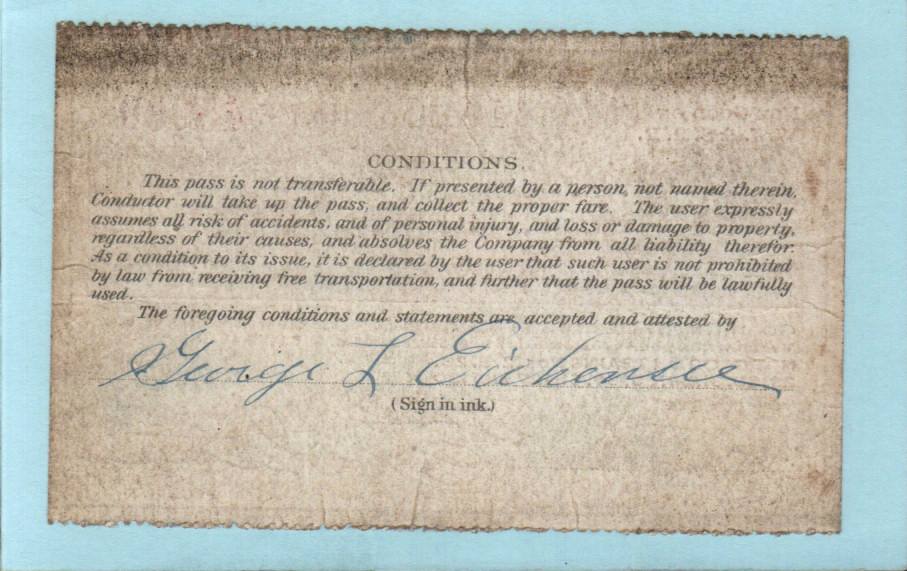 CONDITIONS.
This pass is not transferable. If presented by a person, not named therein,
Conductor will take up the pass, and collect the proper fare. The user expressly
assumes all risk of accidents, and of personal injury, and loss or damage to property,
regardless of their causes, and absolves the Company from all liability therefor.
As a condition to its issue, it is declared by the user that such user is not prohibited
by law from receiving free transportation, and further that the pass will be lawfully
used.
The foregoing conditions and statements are accepted and attested by
George L
(Sign in ink.)